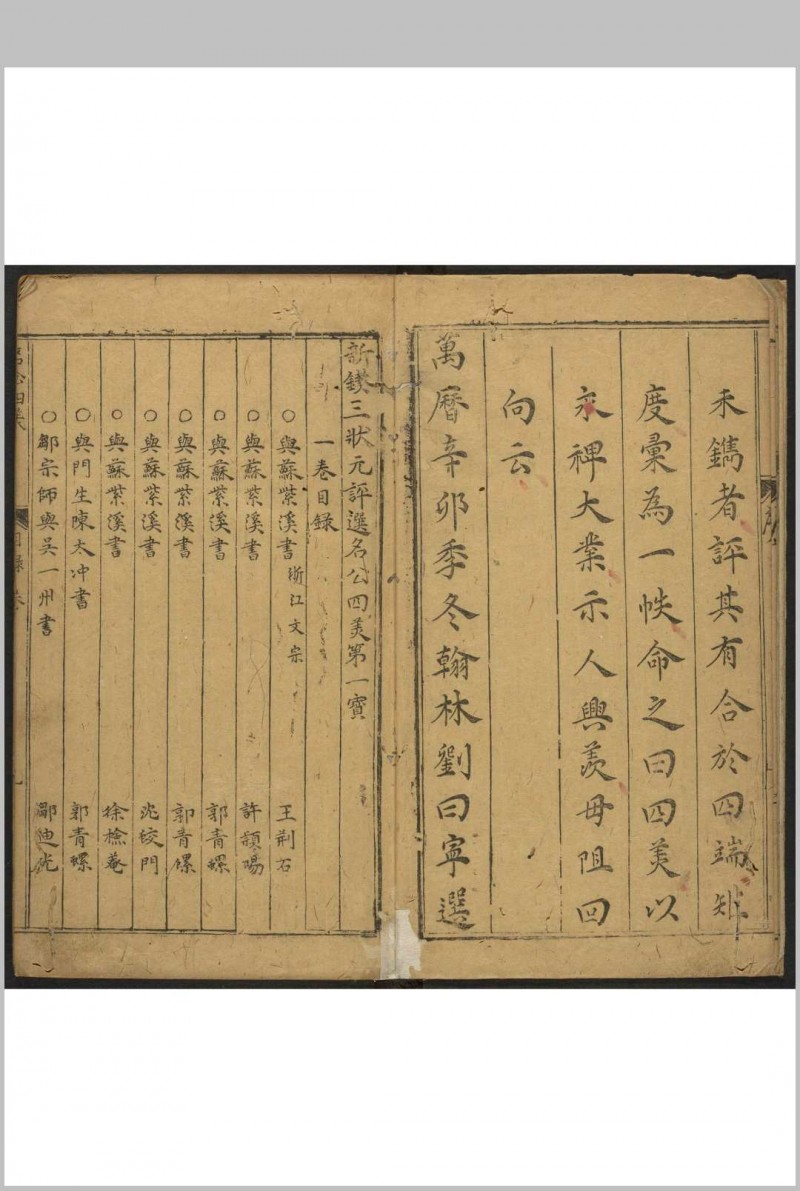 未鐫者評其有合於四端矩
度彙為一帙命之曰四美以
永裨大業示人興羨毋阻回
向云
萬曆辛卯季冬翰林劉曰寧選
新鍥三狀元評選名公四美第一寶
一卷目錄
○與蘇紫溪書 浙江文宗 王荊石
○與蘇紫溪書 許潁陽
○與蘇紫溪書 郭青螺
○與蘇紫溪書 郭青螺
○與蘇紫溪書 沈蛟門
○與蘇紫溪書 徐檢菴
○與門生陳太冲書 郭青螺
○鄒宗師與吳一州書 鄒迪光